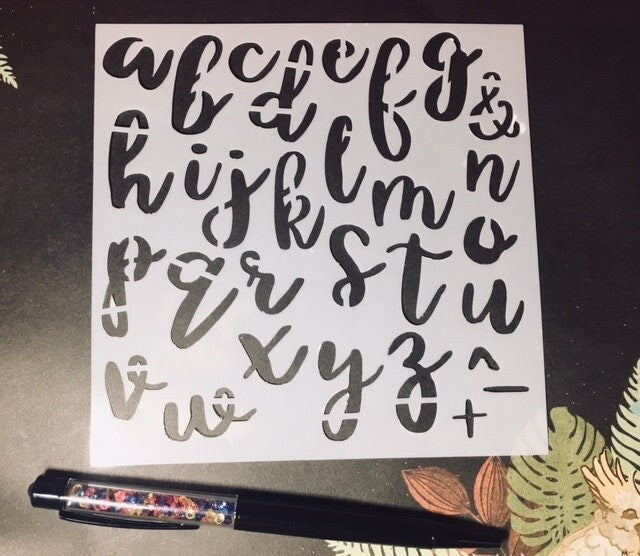 a b c d e f g &
h i j k l m n
p q r s t o
v w x y z u
^ _
+